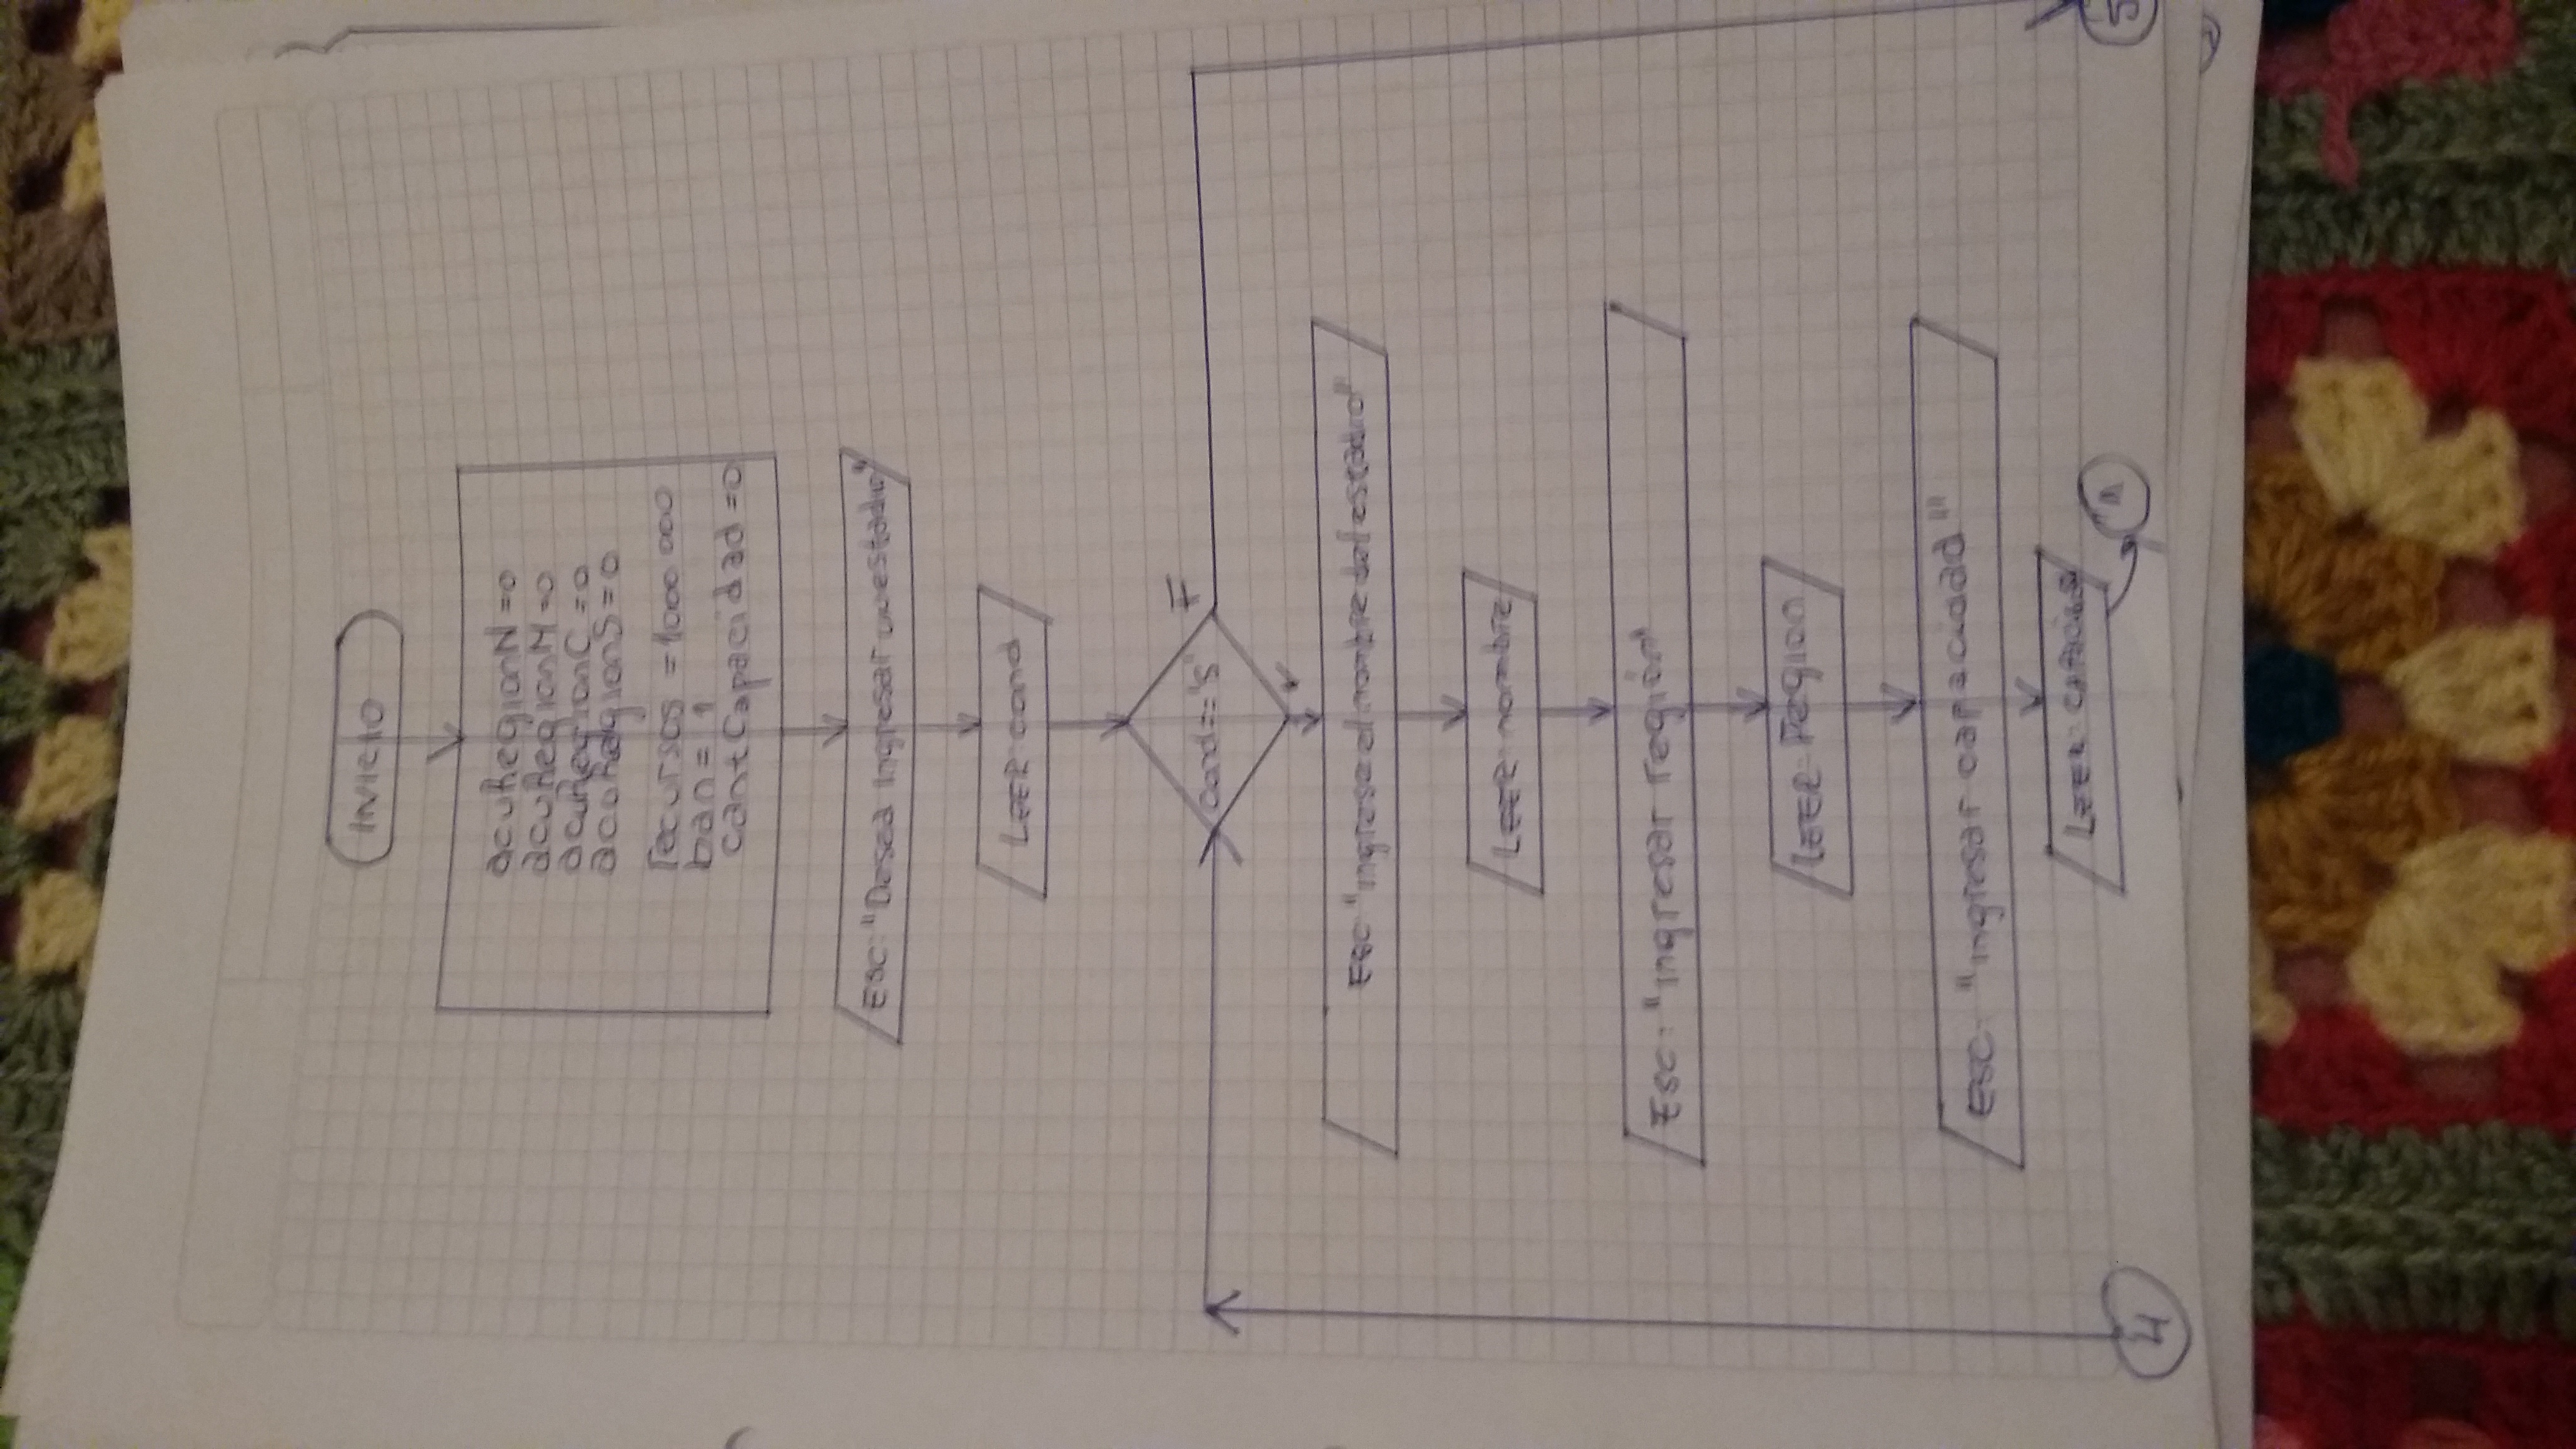 INICIO
acuRegionN=0
acuRegionM=0
acuRegionC=0
acuRegionS=0
recursos =1000 000
ban= 1
cantCapacidad=0
Esc: "Desea ingresar un estadio"
LEER: cand
cand=="S"
F
V
Esc "ingrese el nombre del estadio"
LEER: nombre
Esc: "ingresar región"
LEER: Region
ESC: "ingresar capacidad"
LEER: capacidad
1
4
5